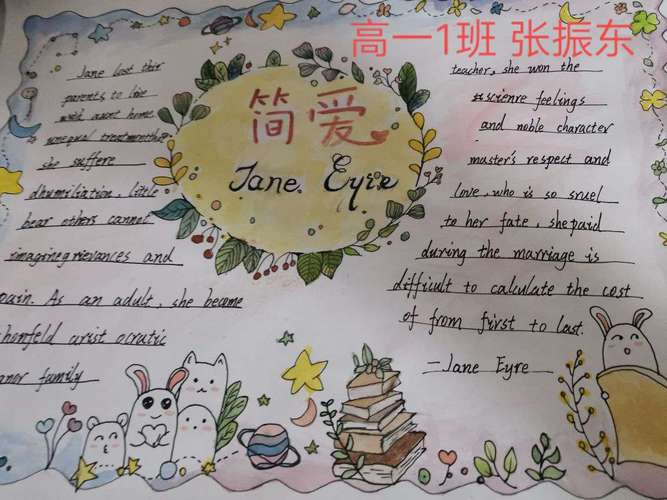 高一1班 张振东
简爱
Jane Eyre
Jane lost their
parents, to live
with aunt home
unequal treatmenthe
she suffere
dhumiliation, little
bear others cannot
imaginegrievances and
pain. As an adult, she become
arist ocratic
family
teacher, she won the
feelings
and noble character
master's respect and
love, who is so sruel
to her fate, shepaid
during the marriage is
difficult to calculate the cost
of from first to last.
—Jane Eyre